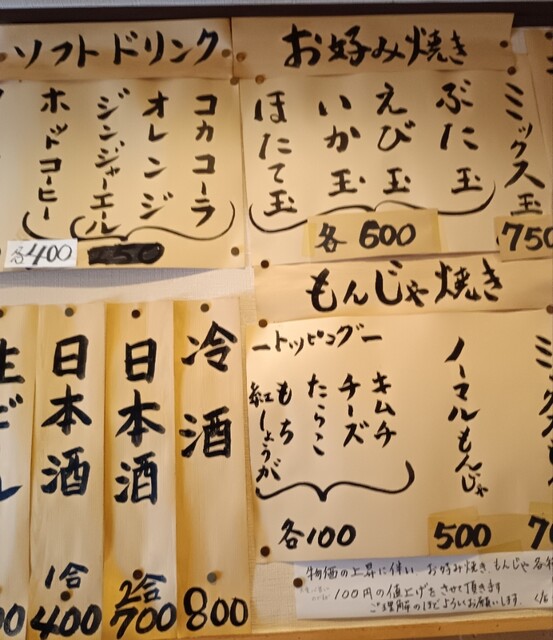 お好み焼き
ミックス玉
750
ぶた玉
えび玉
いか玉
ほたて玉
各600
ソフトドリンク
コカコーラ
オレンジ
ジンジャーエール
ホットコーヒー
各400
もんじゃ焼き
ノーマルもんじゃ
500
トッピング
キムチ
チーズ
たらこ
もち
紅しょうが
各100
冷酒
800
日本酒
2合
700
日本酒
1合
400
物価の上昇に伴い、お好み焼き、もんじゃ各
100円の値上げをさせて頂きます
ご理解のほどよろしくお願いします。